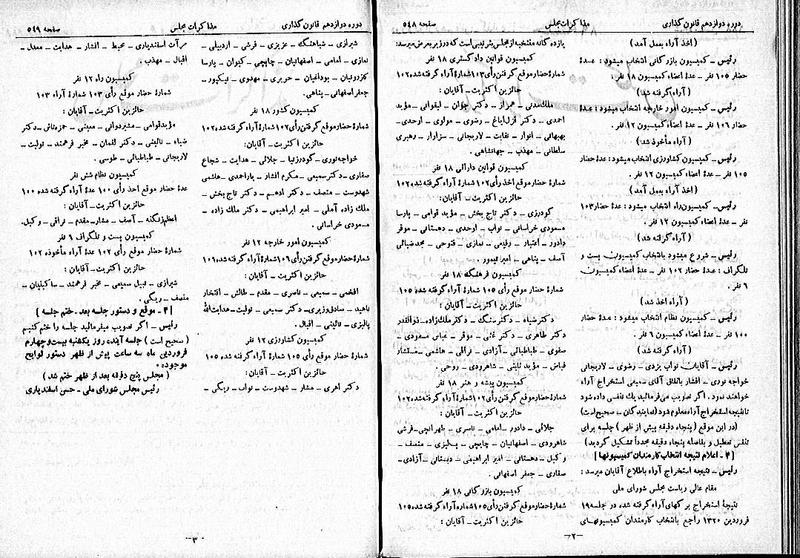 دوره دوازدهم قانون گذاری
مذاکرات مجلس
صفحه ۵۴۸
(اخذ آراء بعمل آمد)
رئیس – کمیسیون بازرگانی انتخاب میشود : عدهٔ
حضار ۱۰۵ نفر – عدهٔ اعضاء کمیسیون ۱۸ نفر .
(آراء گرفته شد)
رئیس – کمیسیون امور خارجه انتخاب میشود : عدهٔ
حضار ۱۰۶ نفر – عدهٔ اعضاء کمیسیون ۱۲ نفر .
(آراء مأخوذ شد)
رئیس – کمیسیون کشاورزی انتخاب میشود : عدهٔ حضار
۱۰۵ نفر – عدهٔ اعضاء کمیسیون ۱۲ نفر .
(اخذ آراء بعمل آمد)
رئیس – کمیسیون راه انتخاب میشود : عدهٔ حضار ۱۰۳
نفر – عدهٔ اعضاء کمیسیون ۱۲ نفر .
(آراء گرفته شد)
رئیس – شروع میشود بانتخاب کمیسیون پست و
تلگراف : عدهٔ حضار ۱۰۲ نفر – عدهٔ اعضاء کمیسیون
۶ نفر .
(آراء اخذ شد)
رئیس – کمیسیون نظام انتخاب میشود : عدهٔ حضار
۱۰۰ نفر – عدهٔ اعضاء کمیسیون ۶ نفر .
(آراء گرفته شد)
رئیس – آقایان نواب یزدی – رضوی – لاریجانی
خواجه نوری – افشار باتفاق آقای سمیعی استخراج آراء
خواهند نمود . اگر تصویب میفرمائید یک نفسی داده شود
تا نتیجه استخراج آراء معلوم شود (نمایندگان – صحیح است)
(در این موقع (پنجاه دقیقه پیش از ظهر) جلسه برای
تنفس تعطیل و بفاصله پنجاه دقیقه مجدداً تشکیل گردید)
[۳ – اعلام نتیجه انتخاب کارمندان کمیسیونها]
رئیس – نتیجه استخراج آراء باطلاع آقایان میرسد :
مقام عالی ریاست مجلس شورای ملی
نتیجهٔ استخراج برگهای آراء گرفته شده در جلسه ۱۹
فروردین ۱۳۲۰ راجع بانتخاب کارمندان کمیسیونهای
یازده گانه منتخبه از مجلس بترتیبی است که در زیر بعرض میرسد :
کمیسیون قوانین دادگستری ۱۸ نفر
شمارهٔ حضار موقع گرفتن رأی ۱۰۳ شمارهٔ آراء گرفته شده ۱۰۲
حائزین اکثریت – آقایان :
ملک‌مدنی – همراز – دکتر جوان – لیقوانی – مؤید
احمدی – دکتر قزل‌ایاغ – رضوی – مولوی – اوحدی –
بهبهانی – انوار – نقابت – لاریجانی – سزاوار – رهبری
سلطانی – مهذب – جهانشاهی .
کمیسیون قوانین دارائی ۱۸ نفر
شمارهٔ حضار موقع اخذ رأی ۱۰۲ شمارهٔ آراء گرفته شده ۱۰۲
حائزین اکثریت – آقایان :
گودرزی – دکتر تاج بخش – مؤید قوامی – پارسا
مسعودی خراسانی – نواب – اوحدی – دهستانی – موقر
دادور – اعتبار – وقیمی – نمازی – فتوحی – مجد ضیائی
آصف – پناهی – امیر تیمور .
کمیسیون فرهنگ ۱۸ نفر
شمارهٔ حضار موقع گرفتن رأی ۱۰۵ شمارهٔ آراء گرفته شده ۱۰۵
حائزین اکثریت – آقایان :
دکتر ضیاء – دکتر سنگ – دکتر ملک‌زاده – ذوالقدر
دکتر طاهری – دکتر غنی – موقر – عباس مسعودی –
صفوی – طباطبائی – آزادی – نراقی – هاشمی – مستشار
فیاض – مؤید ثابتی – شاهرودی – روحی .
کمیسیون پیشه و هنر ۱۸ نفر
شمارهٔ حضار موقع گرفتن رأی ۱۰۲ شمارهٔ آراء گرفته شده ۱۰۲
حائزین اکثریت – آقایان :
جلالی – دادور – امامی – ناصری – طهرانچی – فرشی
شاهرودی – اصفهانیان – چایچی – پالیزی – منصف –
وکیل – دهستانی – امیر ابراهیمی – دبستانی – آزادی –
صفاری – جعفر اصفهانی .
کمیسیون بازرگانی ۱۸ نفر
شمارهٔ حضار موقع گرفتن رأی ۱۰۵ شماره آراء گرفته شده ۱۰۵
حائزین اکثریت – آقایان :
–۲–
دوره دوازدهم قانون گذاری
مذاکرات مجلس
صفحه ۵۴۹
شیرازی – شباهنگ – عزیزی – فرشی – اردبیلی –
نمازی – امامی – اصفهانیان – چایچی – کیوان – پارسا
کازرونیان – بوداغیان – حریری – مهدوی – نیکپور –
جعفر اصفهانی – پناهی .
کمیسیون کشور ۱۸ نفر
شمارهٔ حضار موقع گرفتن رأی ۱۰۲ شمارهٔ آراء گرفته شده ۱۰۲
حائزین اکثریت – آقایان :
خواجه نوری – گودرزنیا – جلائی – هدایت – شجاع
صفاری – دکتر سمیعی – مکرم افشار – پارا احمدی – هاشمی
شهدوست – منصف – دکتر ادهم – دکتر تاج بخش –
ملک زاده آملی – امیر ابراهیمی – دکتر ملک زاده –
مسعودی خراسانی .
کمیسیون امور خارجه ۱۲ نفر
شمارهٔ حضار موقع گرفتن رأی ۱۰۶ شمارهٔ آراء گرفته شده ۱۰۶
حائزین اکثریت – آقایان :
افخمی – سمیعی – ناصری – مقدم – طالش – افتخار
ناهید – صادق وزیری – دکتر سمیعی – تولیت – هدایت‌الله
پالیزی – نائینی – اقبال .
کمیسیون کشاورزی ۱۲ نفر
شمارهٔ حضار موقع گرفتن رأی ۱۰۵ شمارهٔ آراء گرفته شده ۱۰۵
حائزین اکثریت – آقایان :
دکتر اهری – مشار – شهدوست – نواب – ریگی –
مرآت اسفندیاری – محیط – افشار – هدایت – معدل –
اقبال – مهذب .
کمیسیون راه ۱۲ نفر
شمارهٔ حضار موقع رأی ۱۰۳ شمارهٔ آراء ۱۰۳
حائزین اکثریت – آقایان :
مؤید قوامی – مشیر دوانی – معینی – حمزه‌تاش – دکتر
ضیاء – نائیشی – دکتر لقمان – مخبر فرهمند – تولیت –
لاریجانی – طباطبائی – طوسی .
کمیسیون نظام شش نفر
عدهٔ حضار موقع اخذ رأی ۱۰۰ عدهٔ آراء گرفته شده ۱۰۰
حائزین اکثریت – آقایان :
اعظم زنگنه – آصف – مشار – مقدم – نراقی – وکیل.
کمیسیون پست و تلگراف ۶ نفر
شمارهٔ حضار موقع رأی ۱۰۲ عدهٔ آراء مأخوذه ۱۰۲
حائزین اکثریت – آقایان :
شیرازی – فییل سمیعی – مخبر فرهمند – ماکیلیان –
منصف – ریگی .
[۴ – موقع و دستور جلسه بعد – ختم جلسه]
رئیس – اگر تصویب میفرمائید جلسه را ختم کنیم
(صحیح است) جلسه آینده روز یکشنبه بیست و چهارم
فروردین ماه سه ساعت پیش از ظهر دستور لوایح
موجوده .
(مجلس پنج دقیقه بعد از ظهر ختم شد)
رئیس مجلس شورای ملی – حسن اسفندیاری
–۳–